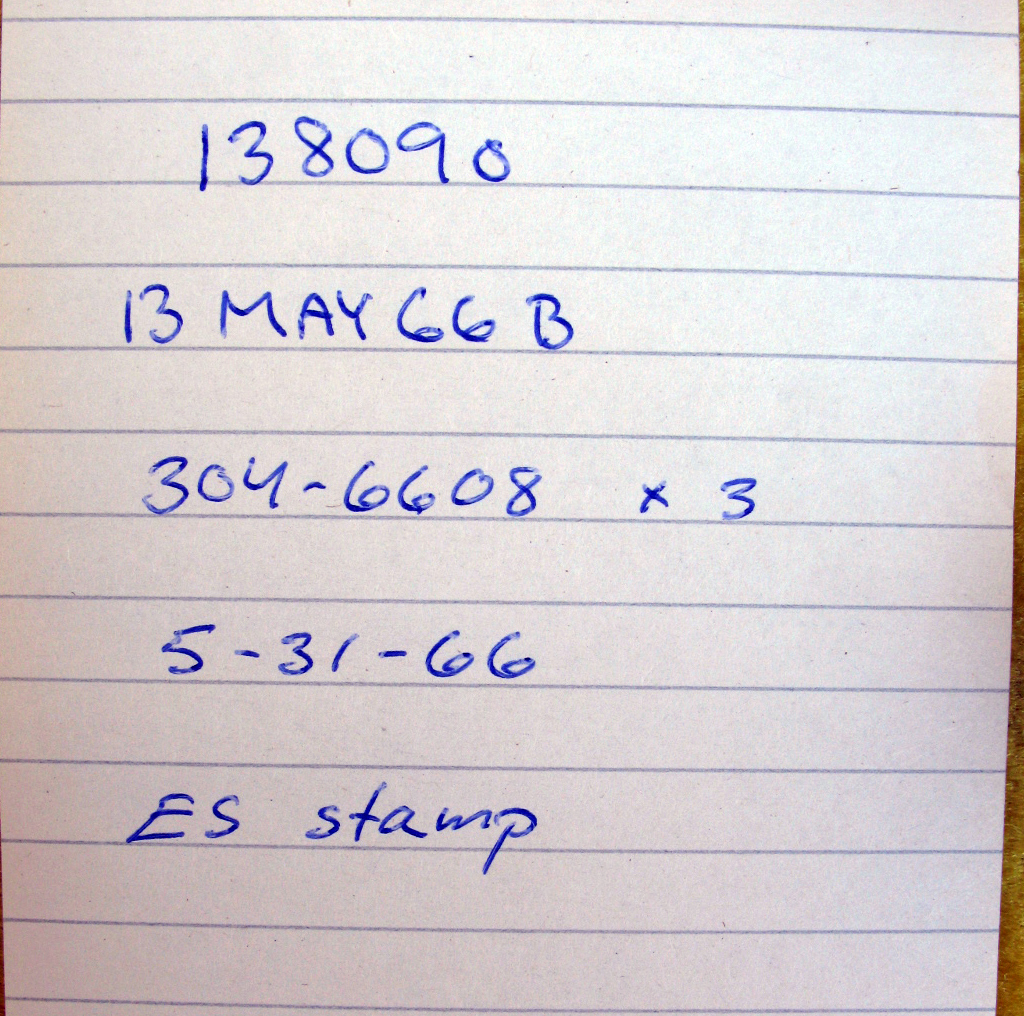 138090
13 MAY 66 B
304-6608 x 3
5-31-66
ES stamp